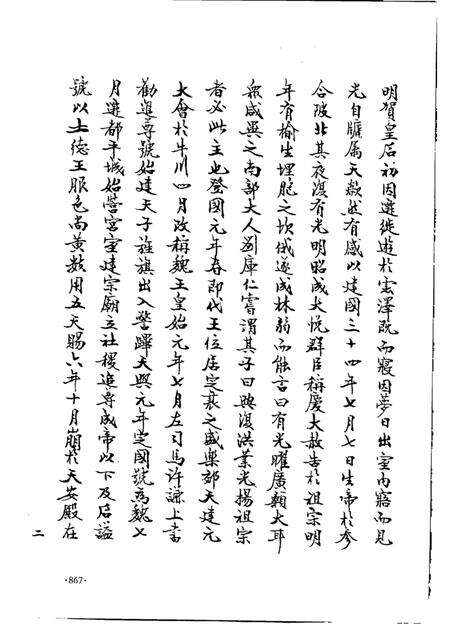 明賀皇后初因遷徙遊於雲澤既而寢因夢日出室內寤而見
光自牖屬天歘然有感以建國三十四年七月七日生帝於參
合陂北其夜復有光明昭成大悅群臣稱慶大赦告於祖宗明
年有榆生埋胞之坎俄遂成林弱而能言曰有光曜廣顙大耳
衆咸異之南部大人劉庫仁嘗謂其子曰興復洪業光揚祖宗
者必此主也登國元年春即代王位居定襄之盛樂郊天建元
大會於牛川四月改稱魏王皇始元年七月左司馬許謙上書
勸進尊號始建天子旌旗出入警蹕天興元年定國號爲魏七
月遷都平城始營宮室建宗廟立社稷追尊成帝以下及后謚
號以土德王服色尚黃數用五天賜六年十月崩於天安殿在
二
·867·